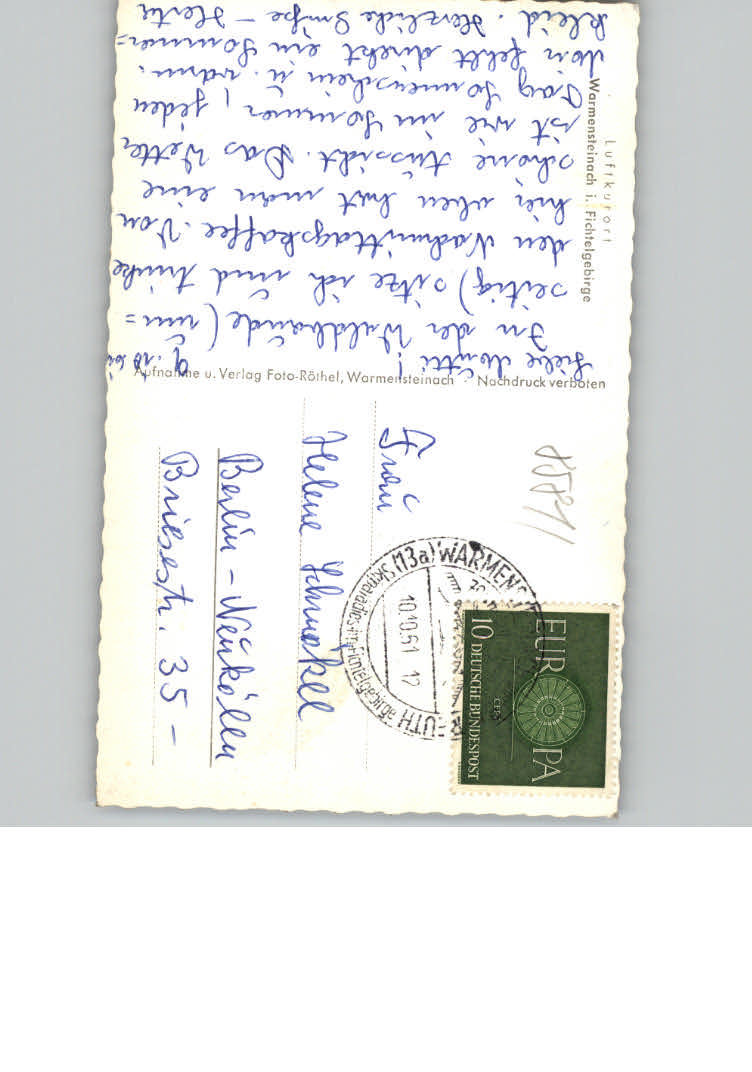 Luftkurort
Warmensteinach i. Fichtelgebirge
9. 10. 61
Liebe Mutti!
In der Waldbaude (um=
seitig) sitze ich und trinke
den Nachmittagskaffee. Von
hier oben hat man eine
schöne Aussicht. Das Wetter
ist wie im Sommer, jeden
Tag Sonnenschein u. warm.
Mir fehlt direkt ein Sommer=
kleid. Herzliche Grüße – Herta
Aufnahme u. Verlag Foto-Röthel, Warmensteinach · Nachdruck verboten
EUROPA
CEPT
10 DEUTSCHE BUNDESPOST
(13a) WARMENS
10.10.61 12
Skiparadies im Fichtelgebirge
Frau
Helene Schmökel
Berlin – Neukölln
Briesestr. 35 –